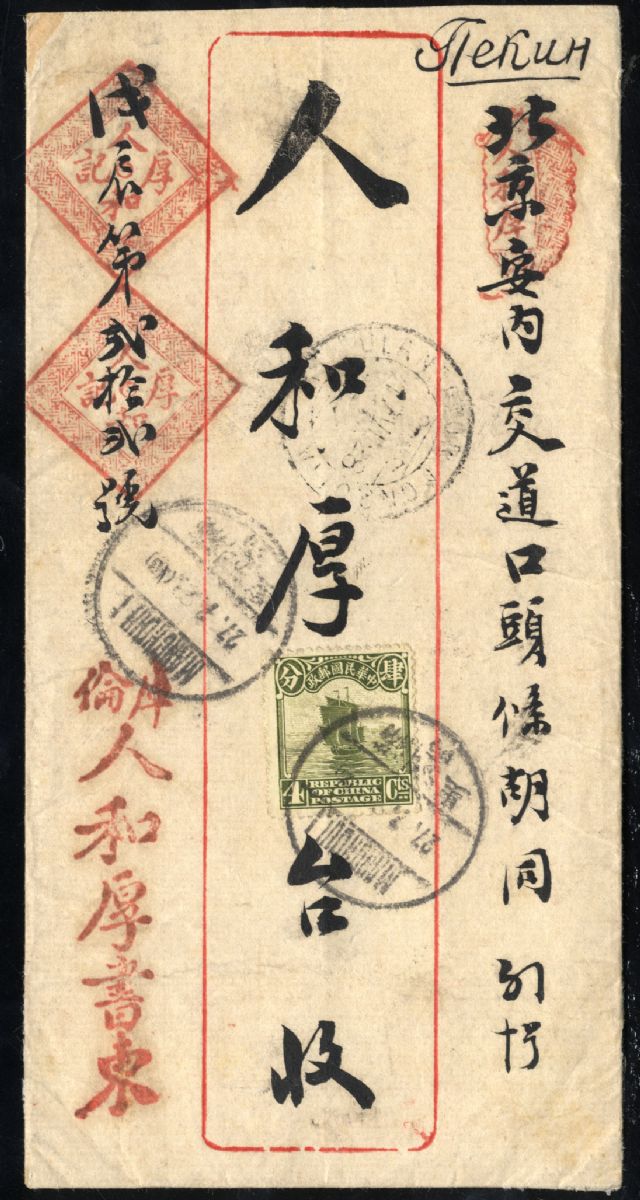 Пекин
北京安内交道口頭條胡同
人和厚台收
中華民國郵政
肆分
4 Cts
REPUBLIC
OF CHINA
POSTAGE
戊辰第弍拾弍號
人和厚記
人和厚記
庫倫
人和厚書柬